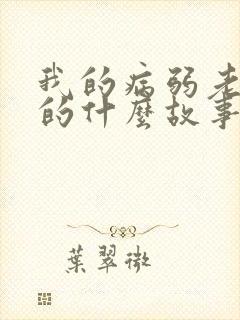 我的病弱老
的什麼故事
葉翠微